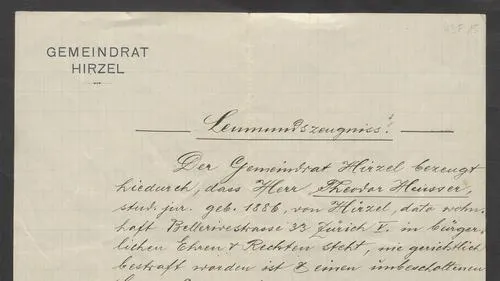 GEMEINDRAT
HIRZEL
Leumundszeugniss.
Der Gemeindrat Hirzel bezeugt
hiedurch, dass Herr Theodor Heusser,
stud. jur. geb. 1886, von Hirzel, dato wohn-
haft Bellerivestrasse 33 Zürich V. in bürger-
lichen Ehren & Rechten steht, nie gerichtlich
bestraft worden ist & einen unbescholtenen